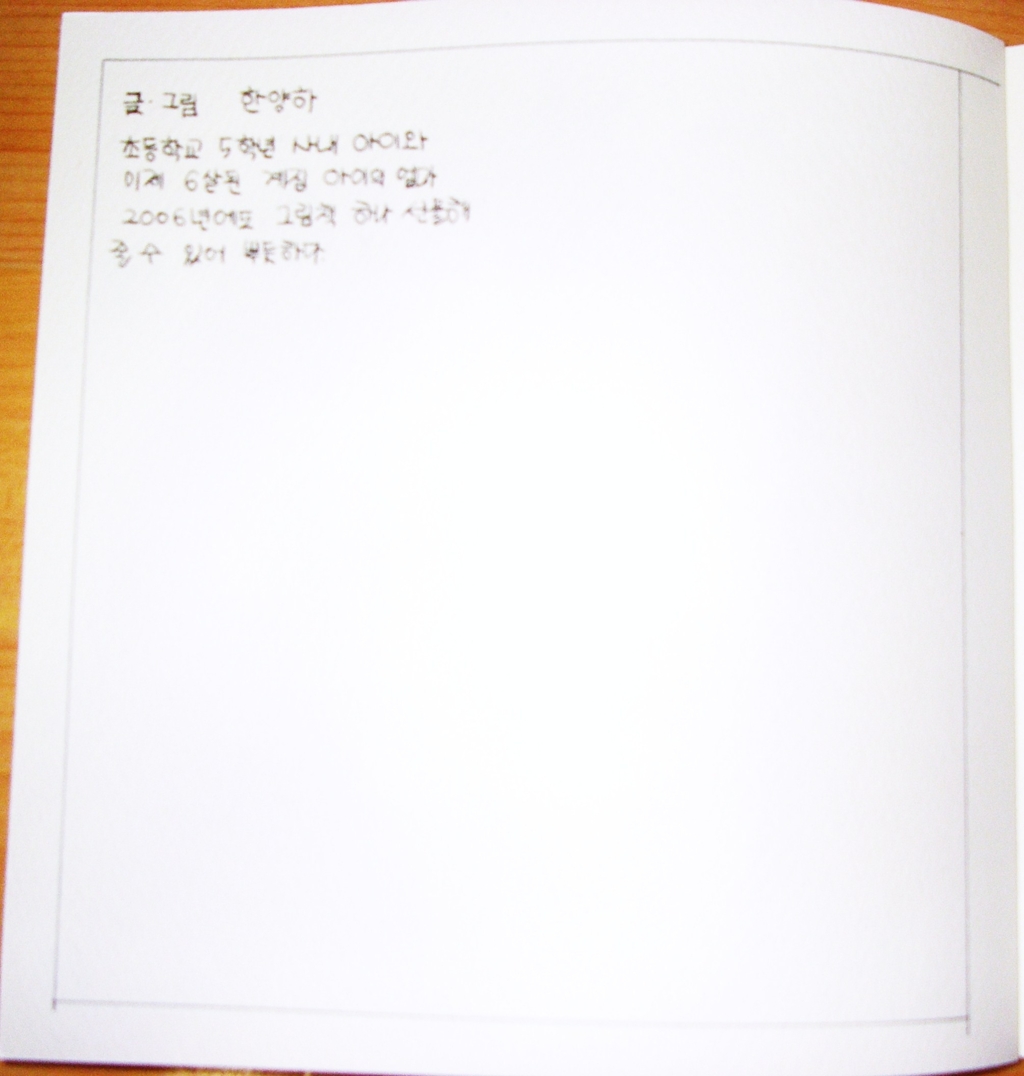 글·그림 한양하
초등학교 5학년 사내 아이와
이제 6살된 계집 아이의 엄마
2006년에도 그림책 하나 선물해
줄 수 있어 뿌듯하다.